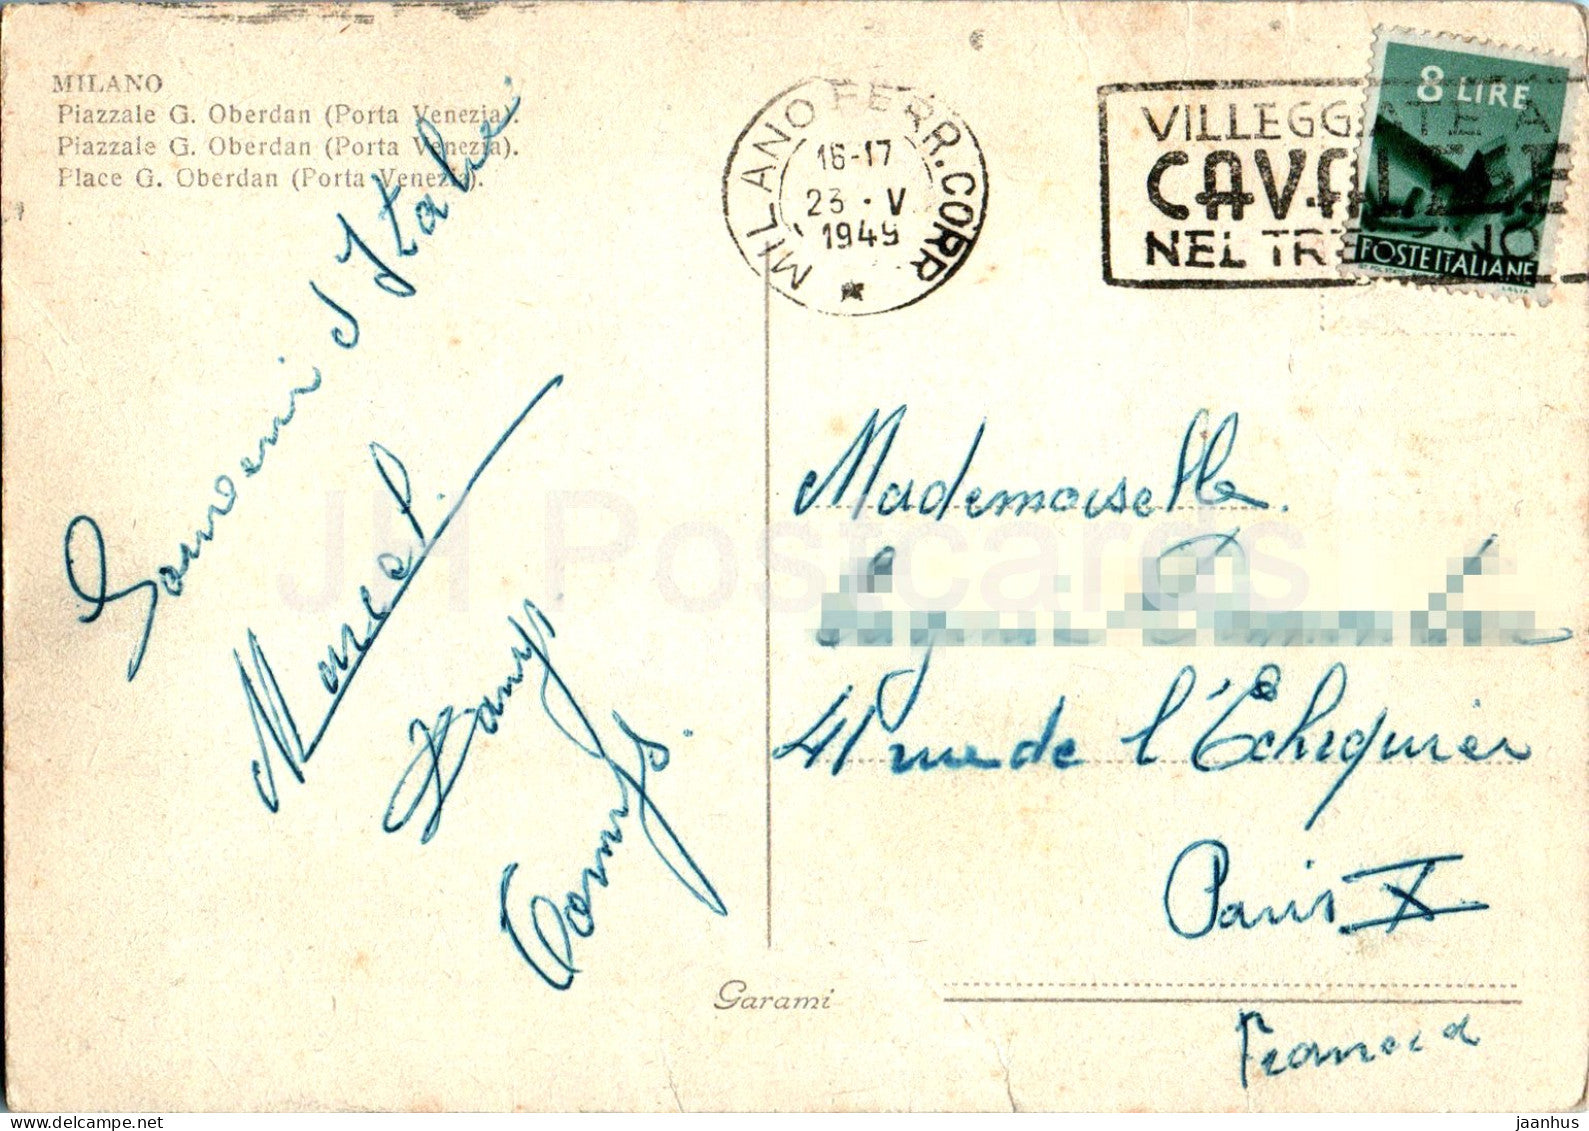 MILANO
Piazzale G. Oberdan (Porta Venezia).
Piazzale G. Oberdan (Porta Venezia).
Place G. Oberdan (Porta Venezia).
MILANO FERR. CORR.
16-17
23 · V
1949
VILLEGGIATE A
CAVALESE
NEL TRENTINO
8 LIRE
POSTE ITALIANE
Souvenir d'Italie
Marcel.
Mademoiselle
41 rue de l'Échiquier
Paris X
Garami
Francia
JH Postcards
jaanhus
delcampe.net